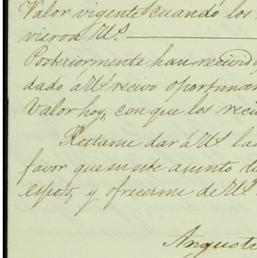 Valor vigente cuando los
vieron V.s.
Posteriormente han
dado á V.s recivo oportuna
Valor hoy, con que los reci
Réstame dar á V.s las
favor que en este asunto
y ofrecerme de V.s